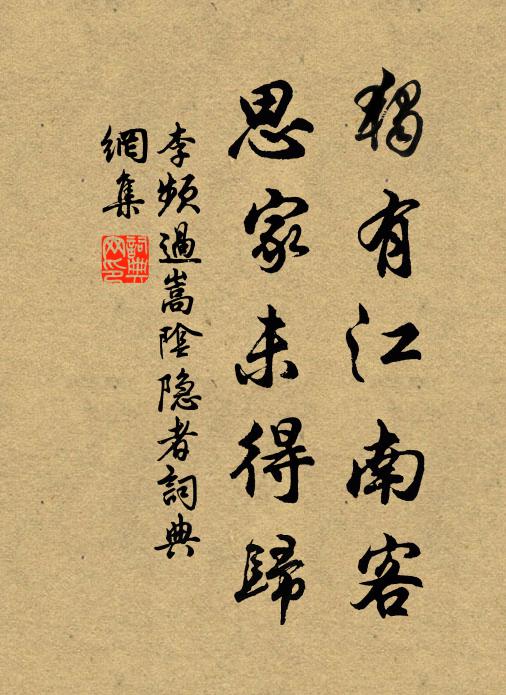 獨有江南客
思家未得歸
李頻過嵩陰隱者詞典
網集
詞典
网印